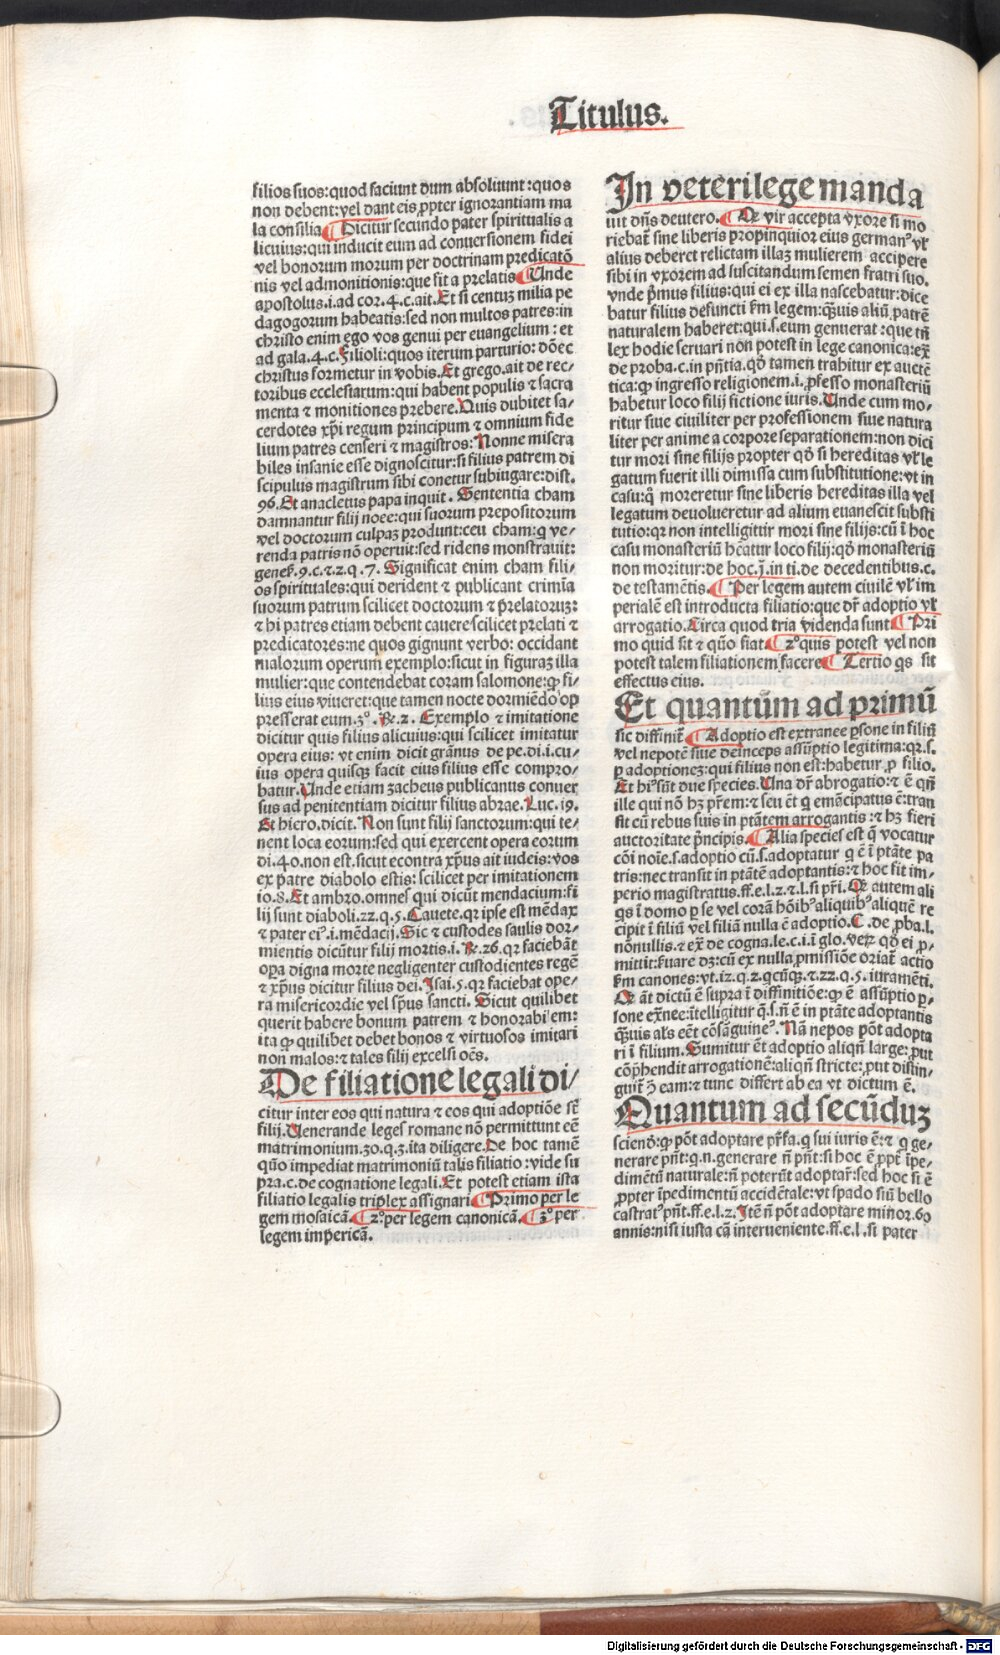 Titulus.
filios suos: quod faciunt dum absoluunt: quos
non debent: vel dant eis ꝓpter ignorantiam ma
la consilia ¶ Dicitur secundo pater spiritualis a
licuius: qui inducit eum ad conuersionem fidei
vel bonorum morum per doctrinam predicatō
nis vel admonitionis: que fit a prelatis ¶ Unde
apostolus .i. ad cor. 4. c. ait. Et si centuꝫ milia pe
dagogorum habeatis: sed non multos patres: in
christo enim ego vos genui per euangelium: et
ad gala. 4. c. Filioli: quos iterum parturio: dōec
christus formetur in vobis. Et grego. ait de rec-
toribus ecclesiarum: qui habent populis ⁊ sacra
menta ⁊ monitiones prebere. Quis dubitet sa-
cerdotes xp̄i regum principum ⁊ omnium fide
lium patres censeri ⁊ magistros: Nonne misera
bilis insanie esse dignoscitur: si filius patrem di
scipulus magistrum sibi conetur subiugare: dist.
96. Et anacletus papa inquit. Sententia cham
damnantur filij noee: qui suorum prepositorum
vel doctorum culpaꝫ produnt: ceu cham: ꝗ ve-
renda patris nō operuit: sed ridens monstrauit:
geneſ. 9. c. ⁊. 2. q. 7. Significat enim cham fili-
os spirituales: qui derident ⁊ publicant crimīa
suorum patrum scilicet doctorum ⁊ p̄relatoruꝫ:
⁊ hi patres etiam debent cauere scilicet prelati ⁊
predicatores: ne quos gignunt verbo: occidant
malorum operum exemplo: sicut in figuraꝫ illa
mulier: que contendebat coram salomone: ꝙ fi-
lius eius viueret: que tamen nocte dormiēdo op
presserat eum. 3º. Re. 2. Exemplo ⁊ imitatione
dicitur quis filius alicuius: qui scilicet imitatur
opera eius: vt enim dicit grānus de pe. di. i. cu-
ius opera quisqꝫ facit eius filius esse compro-
batur. Unde etiam ꝫacheus publicanus conuer
sus ad penitentiam dicitur filius abrae. Luc. 19.
Et hiero. dicit. Non sunt filij sanctorum: qui te-
nent loca eorum: sed qui exercent opera eorum
di. 40. non est. sicut econtra xp̄us ait iudeis: vos
ex patre diabolo estis: scilicet per imitationem
io. 8. Et ambro. omnes qui dicūt mendacium: fi
lij sunt diaboli. 22. q. 5. Cauete. qr ipse est mēdax
⁊ pater eiꝰ. i. mēdacij. Sic ⁊ custodes saulis dor-
mientis dicūtur filij mortis. i. Re. 26. qr faciebāt
oꝑa digna morte negligenter custodientes regē
⁊ xp̄us dicitur filius dei. Isai. 5. qr faciebat ope-
ra misericordie vel sp̄us sancti. Sicut quilibet
querit habere bonum patrem ⁊ honorabi em:
ita ꝙ quilibet debet bonos ⁊ virtuosos imitari
non malos: ⁊ tales filij excelsi oēs.
De filiatione legali di/
citur inter eos qui natura ⁊ eos qui adoptiōe st̄
filij. Venerande leges romane nō permittunt eē
matrimonium. 30. q. 3. ita diligere. De hoc tamē
quō impediat matrimoniū talis filiatio: vide su
pra. c. de cognatione legali. Et potest etiam ista
filiatio legalis triplex assignari ¶ Primo per le
gem mosaicā. ¶ 2º. per legem canonicā. ¶ 3º per
legem imꝑericā.
In veteri lege manda
uit dn̄s deutero. ¶ Qr vir accepta vxore si mo
riebat̄ sine liberis propinquior eius germanꝰ vl̄
alius deberet relictam illaꝫ mulierem accipere
sibi in vxorem ad suscitandum semen fratri suo.
vnde p̄mus filius: qui ei ex illa nascebatur: dice
batur filius defuncti ẜm legem: ꝙ̄uis aliū patrē
naturalem haberet: qui. s. eum genuerat: que tn̄
lex hodie seruari non potest in lege canonica: ex̄
de proba. c. in pn̄tia. qō tamen trahitur ex auctē
tica: ꝙ ingresso religionem. i. ꝓfesso monasteriū
habetur loco filij fictione iuris. Unde cum mo-
ritur siue ciuiliter per professionem siue natura
liter per anime a corpore separationem: non dici
tur mori sine filijs propter qō si hereditas vl̄ le
gatum fuerit illi dimissa cum substitutione: vt in
casu: ꝙ̄ moreretur sine liberis hereditas illa vel
legatum deuolueretur ad alium euanescit substi
tutio: qr non intelligitur mori sine filijs: cū ī hoc
casu monasteriū hēatur loco filij: qō monasteriū
non moritur: de hoc. j. in ti. de decedentibus. c.
de testamētis. ¶ Per legem autem ciuilē vl̄ im
perialē est introducta filiatio: que dr̄ adoptio vl̄
arrogatio. Circa quod tria videnda sunt ¶ Pri
mo quid sit ⁊ quō fiat ¶ 2º quis potest vel non
potest talem filiationem facere ¶ Tertio qs sit
effectus eius.
Et quantū̄m ad primū
sic diffinit̄ ¶ Adoptio est extranee ꝑsone in filiū
vel nepotē siue deinceps assūptio legitima: qr. s.
ꝑ adoptioneꝫ: qui filius non est: habetur ꝓ filio.
Et hiꝰ sūt due species. Una dr̄ abrogatio: ⁊ ē qn̄
ille qui nō hꝫ pr̄em: ⁊ seu ēt ꝗ emācipatus ē: tran
sit cū rebus suis in ptātem arrogantis: ⁊ hꝫ fieri
auctoritate p̄ncipis. ¶ Alia species est ꝗ̄ vocatur
cōi noīe. s. adoptio cū. s. adoptatur ꝗ ē ī ptāte pa
tris: nec transit in ptātē adoptantis: ⁊ hoc fit im-
perio magistratus. ff. e. l. 2. ⁊. l. si pr̄i. Qr autem ali
qs ī domo ꝑ se vel corā hōibꝰ aliquibꝰ aliquē re
cipit ī filiū vel filiā nulla ē adoptio. C. de ꝓba. l.
nōnullis. ⁊ ex̄ de cogna. le. c. i. ī glo. veꝝ qō ei ꝓ-
mittit: ẜuare dꝫ: cū ex nulla ꝓmissiōe oriat̄ actio
ẜm canones: vt. 12. q. 2. qcūqꝫ. ⁊. 22. q. 5. iuramēti.
Qr āt dictū ē supra ī diffinitiōe: ꝙ ē assūptio ꝑ-
sone ex̄nee: ītelligitur ꝗ. s. n̄ ē in ptāte adoptantis
ꝙ̄uis als eēt cōsāguineꝰ. Nā nepos pōt adopta
ri ī filium. Sumitur ēt adoptio aliqn̄ large: ꝓut
cōp̄hendit arrogationē: aliqn̄ stricte: ꝓut distin-
guit̄ ꝯ̄ eam: ⁊ tunc differt ab ea vt dictum ē.
Quantum ad secūduꝫ
sciend: ꝙ pōt adoptare pr̄fa. ꝗ sui iuris ē: ⁊ ꝗ ge-
nerare pn̄t: ꝗ. n. generare n̄ pn̄t: si hoc ē ꝓpt̄ īpe-
dimētū naturale: n̄ poterūt adoptar̄: sed hoc si ē
ꝓpter īpedimentū accidētale: vt spado siū bello
castratꝰ pn̄t. ff. e. l. 2. Itē n̄ pōt adoptare minor. 60
annis: nisi iusta cā interueniente. ff. e. l. si pater
Digitalisierung gefördert durch die Deutsche Forschungsgemeinschaft - DFG